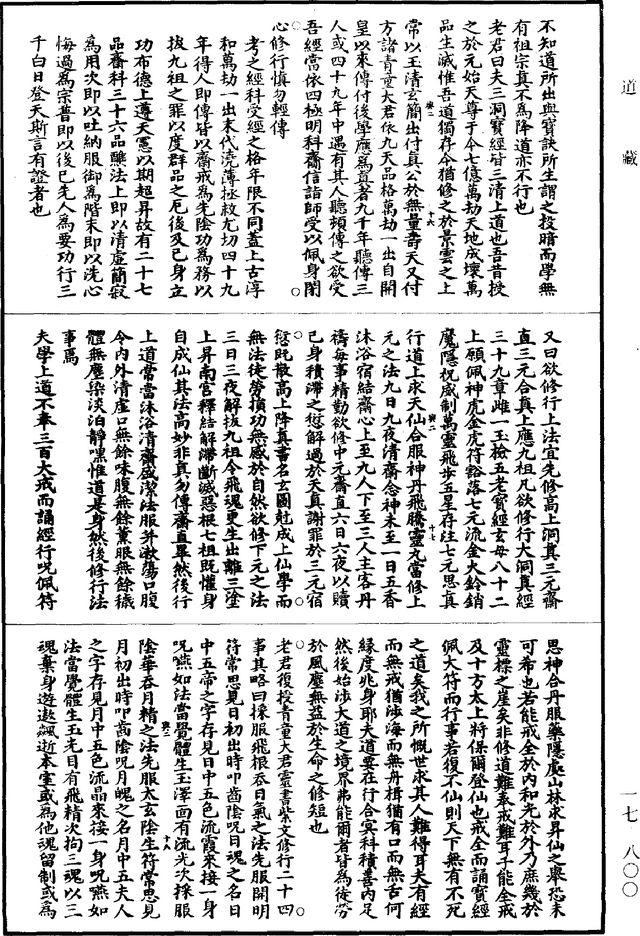 道藏
不知道所出與寶訣所生謂之投暗而學無
有祖宗真不為降道亦不行也
老君曰夫三洞寶經皆三清上道也吾昔授
之於元始天尊于今七億萬劫天地成壞萬
品生滅惟吾道獨存今猶修之於景雲之上
常以玉清玄簡出付真公於無量壽天又付
方諸青童大君依九天品格萬劫一出自開
皇以來傳付後學應為真者九千年聽傳三
人或四十九年中遇有其人聽頓傳之欲受
吾經當依四極明科齋信詣師受以佩身閑
心修行慎勿輕傳
考之經科受經之格年限不同蓋上古淳
和萬劫一出末代澆薄拯救尤切四十九
年得人即傳皆以齋戒為先陰功為務以
拔九祖之罪以度群品之厄後及己身立
功布德上遵天憲以期超昇故有二十七
品齋科三十六品醮法上即以清虛簡寂
為用次即以吐納服御為階末即以洗心
悔過為宗普即以後己先人為要功行三
千白日登天斯言有證者也
又曰欲修行上法宜先修高上洞真三元齋
直三元合真上應九祖凡欲修行大洞真經
三十九章雌一玉檢五老寶經玄母八十二
上願佩神虎金虎符豁落七元流金火鈴銷
魔隱祝威制萬靈飛步五星存注七元思真
行道上求天仙合服神丹飛騰靈丸當修上
元之法九日九夜清齋念神未至一日五香
沐浴宿結齋心上至九人下至三人主客丹
禱每事精勤欲修中元齋直六日六夜以贖
己身積滯之愆解過於天真謝罪於三元宿
愆既散高上降真書名玄圖尅成上仙學而
無法徒勞損功無感於自然欲修下元之法
三日三夜解拔九祖令飛魂更生出離三塗
上昇南宮釋結解滯斷滅惡根七祖既懽身
自成仙其法高妙非真勿傳齋直畢然後行
上道常當沐浴清齋盛潔法服并漱蕩口腹
令內外清虛口無餘味腹無餘薰服無餘穢
體無塵染淡泊靜嘿惟道是身然後修行法
事焉
夫學上道不奉三百大戒而誦經行呪佩符
思神合丹服藥隱處山林求昇仙之舉恐未
可希也若能戒全於內和光於外乃庶幾於
靈標之崖矣非修道難奉戒難耳子能全戒
及十方太上將保爾登仙也戒全而誦寶經
佩大符而行事若復不仙則天下無有不死
之道矣我之所慨世求其人難得耳夫有經
而無戒猶涉海而無舟楫猶有口而無舌何
緣度兆身耶夫道要在行合冥科積善內足
然後始涉大道之境界弗能爾者皆為徒勞
於風塵無益於生命之修短也
老君復授青童大君靈書紫文修行二十四
事其略曰採服飛根吞日氣之法先服開明
符常思見日初出時叩齒陰呪日魂之名日
中五帝之字存見日中五色流霞來接一身
呪嚥如法當覺體生玉澤面有流光次採服
陰華吞月精之法先服太玄陰生符常思見
月初出時叩齒陰呪月魄之名月中五夫人
之字存見月中五色流晶來接一身呪嚥如
法當覺體生玉光目有飛精次拘三魂以三
魂棄身遊遨飆逝本室或為他魂留制或為
一七 八〇〇